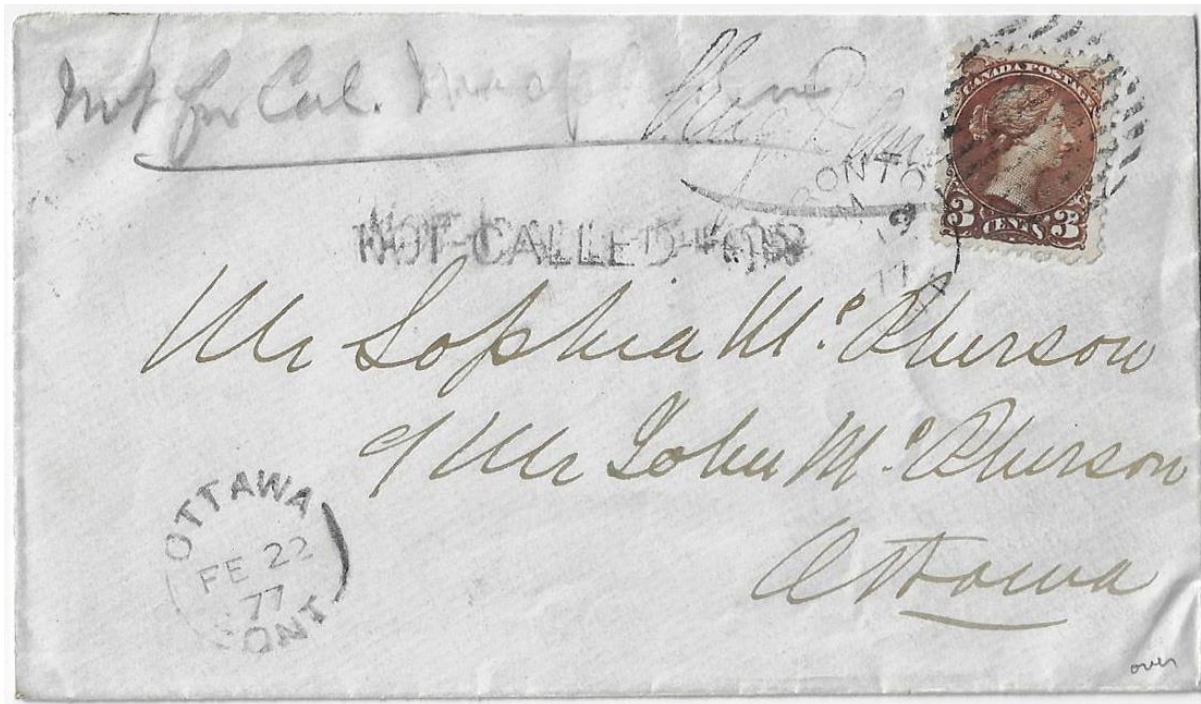 Not for Col.
CANADA POSTAGE
3 CENTS 3
ONTO
77
NOT CALLED FOR
Mr Sophia McPherson
c/ Mr John McPherson
Ottawa
OTTAWA
FE 22
77
ONT
over